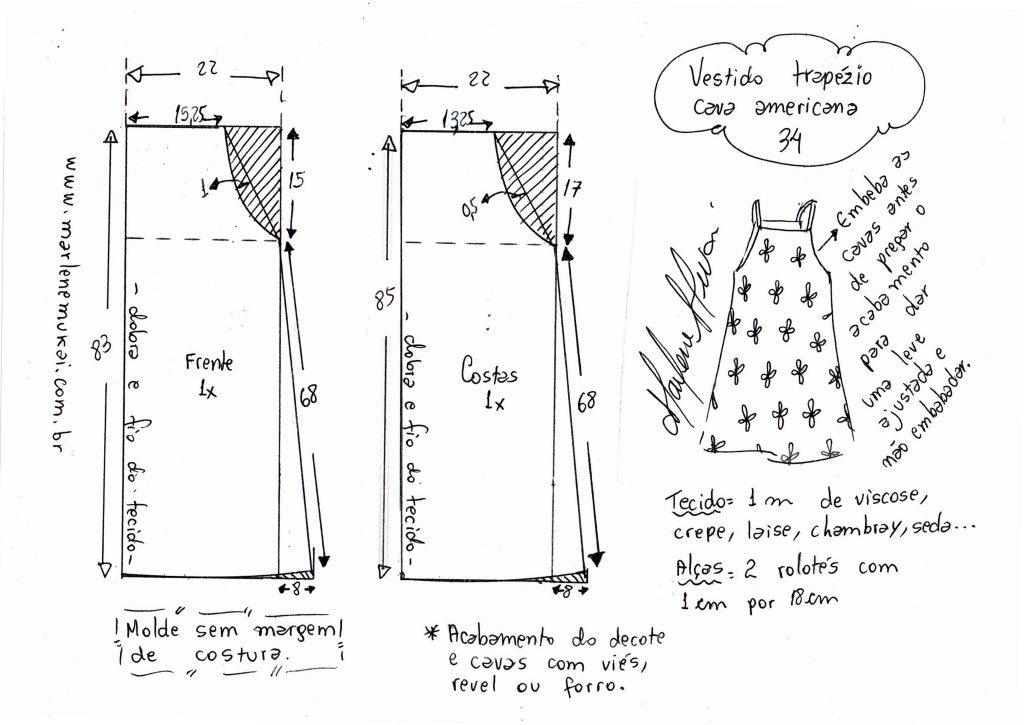 Vestido trapézio
cava americana
34
22
15,25
83
1
15
68
8
- dobra e fio do tecido -
Frente
1x
www.marlenemukai.com.br
22
13,25
85
0,5
17
68
8
- dobra e fio do tecido -
Costas
1x
Embeba as
cavas antes
de prepar o
acabamento
para dar
uma leve
ajustada e
não embabadar.
Marlene Mukai
Tecido = 1 m de viscose,
crepe, laise, chambray, seda...
Alças = 2 rolotés com
1 cm por 18 cm
Molde sem margem
de costura.
* Acabamento do decote
e cavas com viés,
revel ou forro.